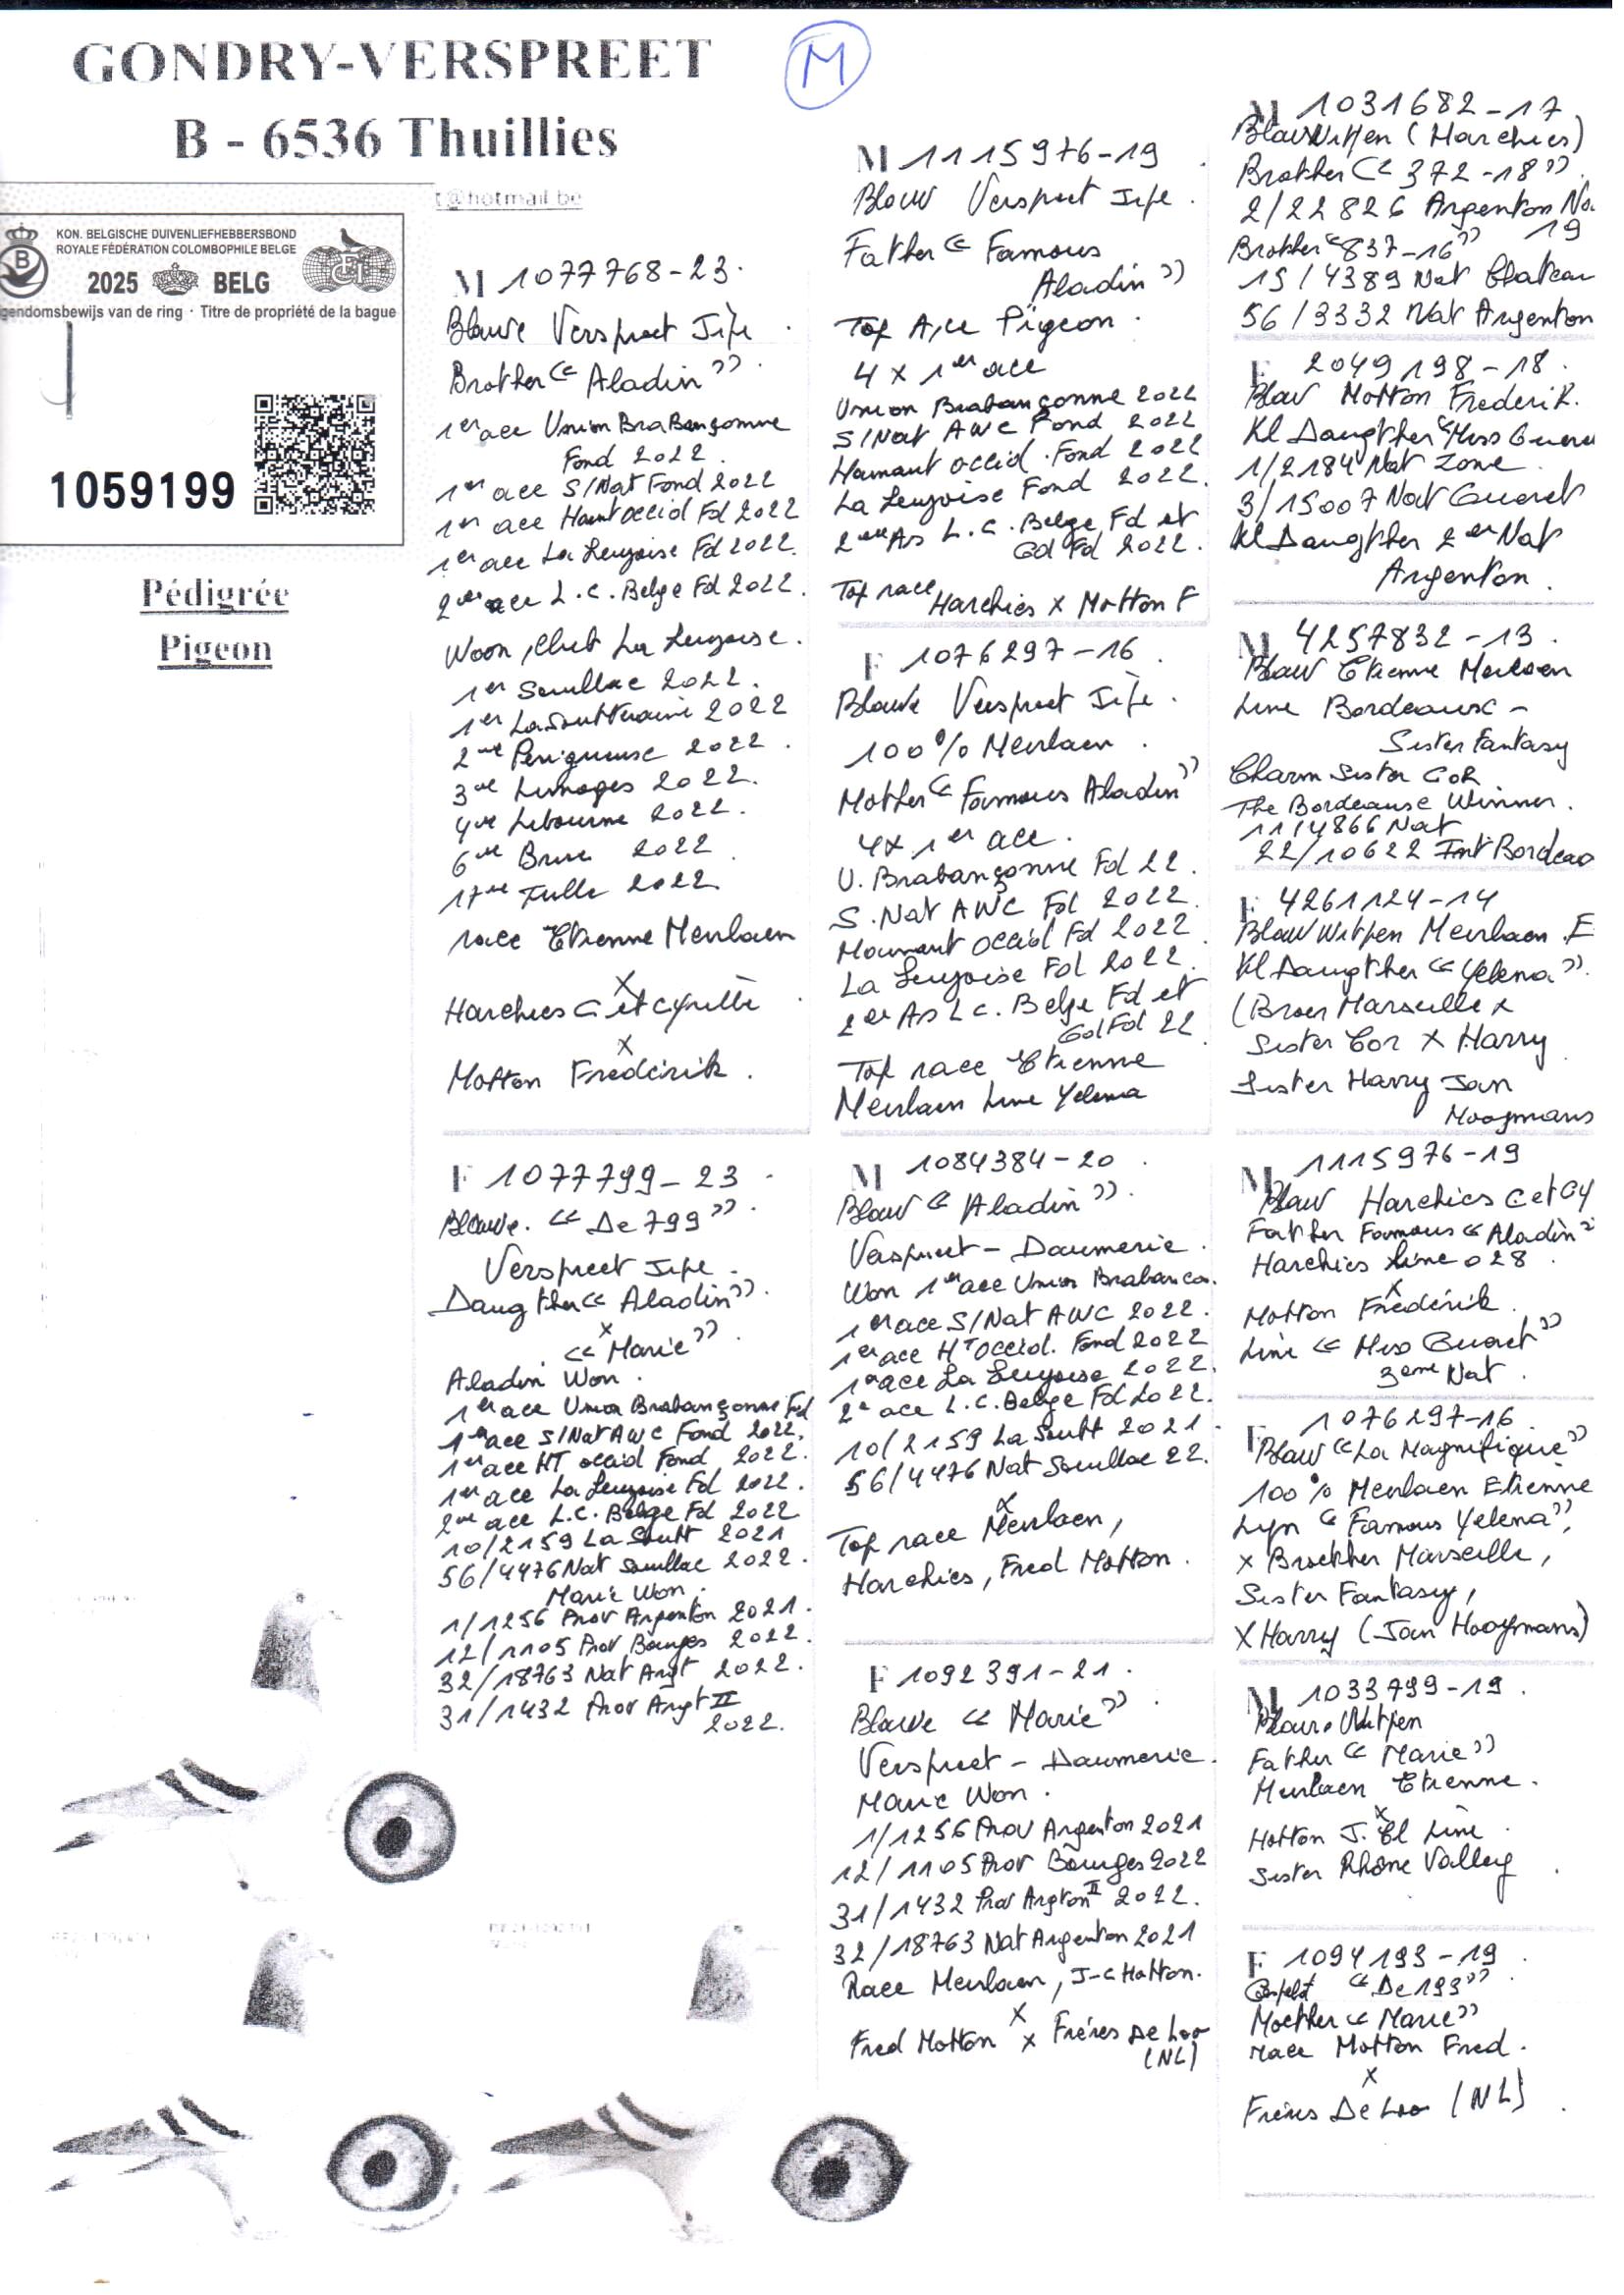 GONDRY-VERSPREET
B - 6536 Thuillies
M
t@hotmail.be
KON. BELGISCHE DUIVENLIEFHEBBERSBOND
ROYALE FÉDÉRATION COLOMBOPHILE BELGE
2025 BELG
gendomsbewijs van de ring · Titre de propriété de la bague
1059199
Pédigrée
Pigeon
M 1077768-23.
Blauwe Verspreet Jife.
Brother << Aladin >>
1er ace Union Brabançonne
Fond 2022.
1er ace S/Nat Fond 2022
1er ace Haint Occid Fd 2022
1er ace La Leuzoise Fd 2022.
2eme ace L.C. Belge Fd 2022.
Woon, Club La Leuzoise.
1er Souillac 2022.
1er La Soutteraine 2022
2me Perigueuse 2022.
3me Limoges 2022.
4me Libourne 2022.
6me Brive 2022.
17me Tulle 2022.
race Etienne Meulaen
X
Harchies C et Cyrille.
X
Motton Frédérik.
F 1077799-23.
Blauwe. << De 799 >>.
Verspreet Jife.
Daugther << Aladin >>.
x
<< Marie >>.
Aladin Won.
1er ace Union Brabançonne Fd
1er ace S/Nat AWC Fond 2022.
1er ace HT occid Fond 2022.
1er ace La Leuzoise Fd 2022.
2me ace L.C. Belge Fd 2022
10/2159 La Soutt 2021
56/4476 Nat Souillac 2022.
Marie Won.
1/1256 Prov Argenton 2021.
12/1105 Prov Bourges 2022.
32/18763 Nat Argt 2022.
31/1432 Prov Argt II
2022.
M 1115976-19
Blauw Verspreet Jife.
Father << Famous
Aladin >>
Top Ace Pigeon.
4 x 1er ace
Union Brabançonne 2022
S/Nat AWC Fond 2022
Hainaut Occid. Fond 2022
La Leuzoise Fond 2022.
2eme As L.C. Belge Fd et
Gd Fd 2022.
Top race Harchies x Motton F
F 1076297-16.
Blauwe Verspreet Jife.
100% Meulaen.
Mother << Famous Aladin >>
4x 1er ace.
U. Brabançonne Fd 22.
S. Nat AWC Fd 2022.
Hainaut Occid Fd 2022
La Leuzoise Fd 2022.
2er As L.C. Belge Fd et
Gd Fd 22
Top race Etienne
Meulaen Line Yelena
M 1084384-20.
Blauw << Aladin >>.
Verspreet - Daumerie.
Won 1er ace Union Brabanco.
1er ace S/Nat AWC 2022.
1er ace HT Occid. Fond 2022
1er ace La Leuzoise 2022.
2e ace L.C. Belge Fd 2022.
10/2159 La Soutt 2021.
56/4476 Nat Souillac 22.
x
Top race Meulaen,
Harchies, Fred Motton.
F 1092391-21.
Blauwe << Marie >>.
Verspreet - Daumerie.
Marie Won.
1/1256 Prov Argenton 2021
12/1105 Prov Bourges 2022
31/1432 Prov Argton II 2022.
32/18763 Nat Argenton 2021
Race Meulaen, J-C Hotton.
x
Fred Motton x Fréres De Loo
(NL)
M 1031682-17
Blauw Witpen (Harchies)
Brother << 372-18 >>.
2/22826 Argenton Na.
19
Brother << 837-16 >>
15/4389 Nat Chateau
56/3332 Nat Argenton
F 2049198-18.
Blauw Motton Frederik.
Kl Daugther << Miss Gueret
1/2184 Nat Zone.
3/15007 Nat Gueret
Kl Daugther 2er Nat
Argenton.
M 4257832-13.
Blauw Etienne Meulaen
Line Bordeause -
Sister Fantasy
Charm Sister Cor
The Bordeause Winner.
11/4866 Nat
22/10622 Int Bordeao
F 4261124-14
Blauw Witpen Meulaen .E
Kl Daugther << Yelena >>.
(Broer Marseille x
Sister Cor x Harry
Sister Harry Jan
Hooymans
M 1115976-19
Blauw Harchies C et Cy
Father Famous << Aladin >>
Harchies Line 028.
x
Motton Frédérik.
Line << Miss Gueret >>
3eme Nat.
F 1076297-16
Blauw << La Magnifique >>
100% Meulaen Etienne
Lyn << Famous Yelena >>,
x Broether Marseille,
Sister Fantasy,
X Harry (Jan Hooymans)
M 1033799-19.
Blauw Witpen
Father << Marie >>
Meulaen Etienne.
x
Hotton J. Cl Line.
Sister Rhône Valley.
F 1094193-19.
<< De 193 >>.
Moether << Marie >>
race Motton Fred.
x
Fréres De Loo (NL).